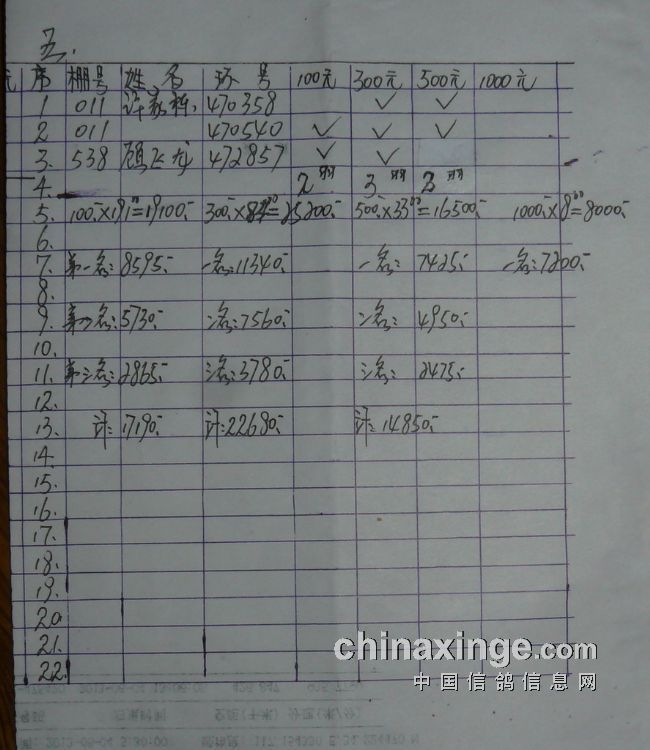 五.
元 序 棚号 姓名 环号 100元 300元 500元 1000元
1 011 许 470358 ✓ ✓
2 011 470540 ✓ ✓ ✓
3. 538 顾飞龙 472857 ✓ ✓
4. 2羽 3羽 2羽
5. 100.-×191=19100.- 300.-×84=25200.- 500.-×33=16500.- 1000.-×8=8000.-
6.
7. 第一名:8595.- 一名:11340.- 一名: 7425.- 一名:7200.-
8.
9. 第二名:5730.- 二名:7560.- 二名: 4950.-
10.
11. 第三名:2865.- 三名:3780.- 三名: 2475.-
12.
13. 计:17190.- 计:22680.- 计:14850.-
14.
15.
16.
17.
18.
19.
20.
21.
22.
chinaxinge.com
中国信鸽信息网